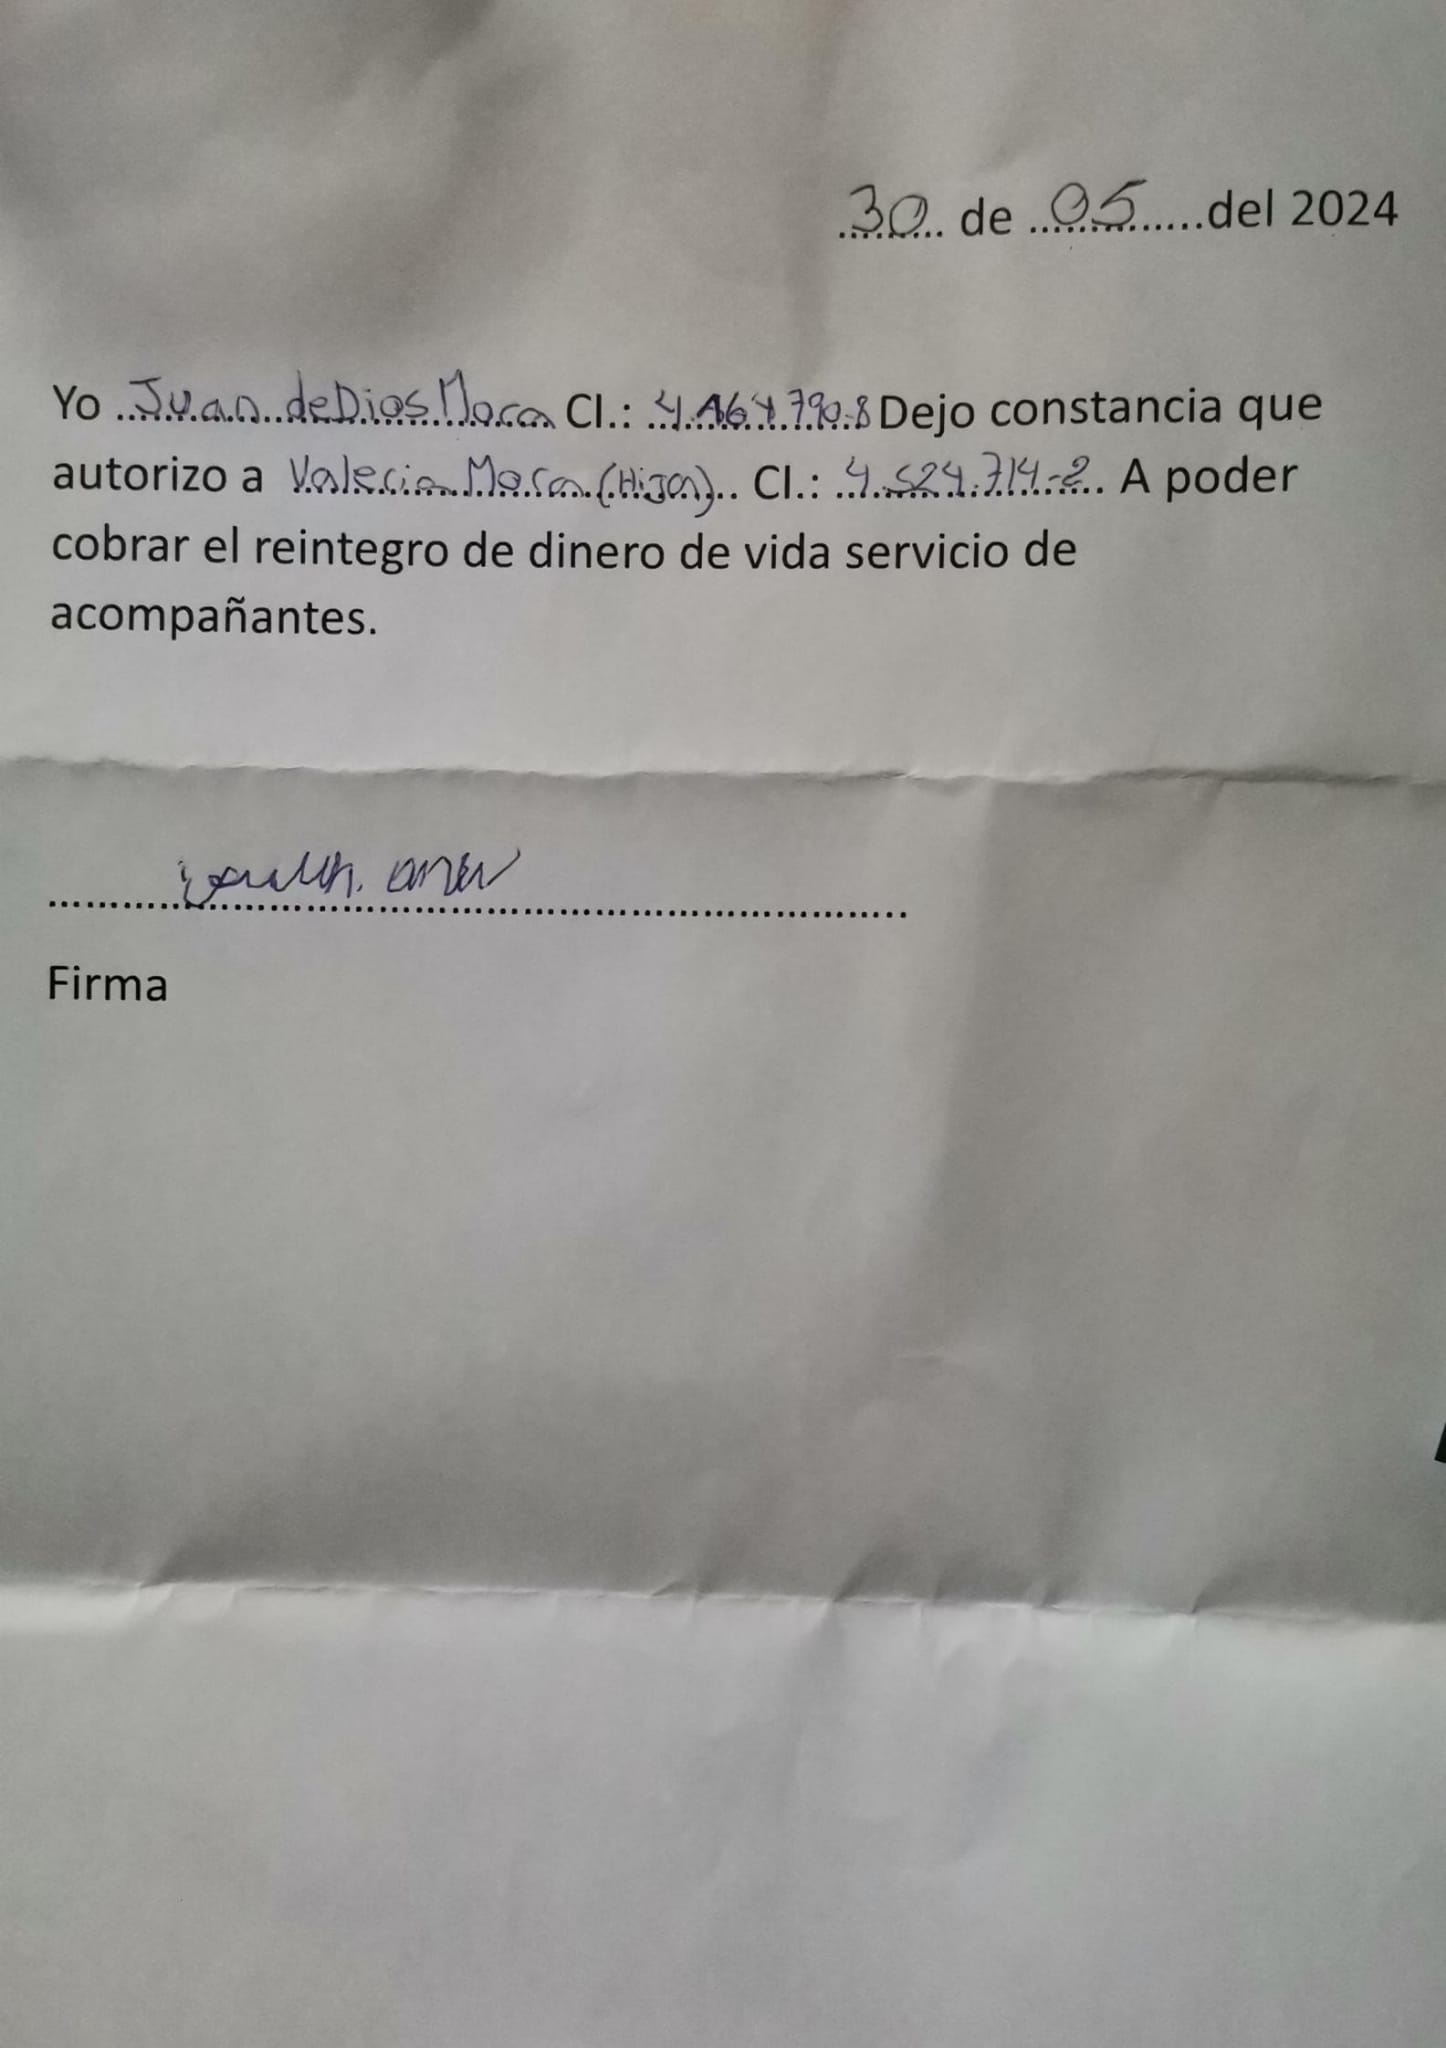 30 de 05 del 2024
Yo Juan de Dios Mora CI.: 4.164.790-8 Dejo constancia que
autorizo a Valeria Mora (Hija) CI.: 4.524.714-2. A poder
cobrar el reintegro de dinero de vida servicio de
acompañantes.
Firma